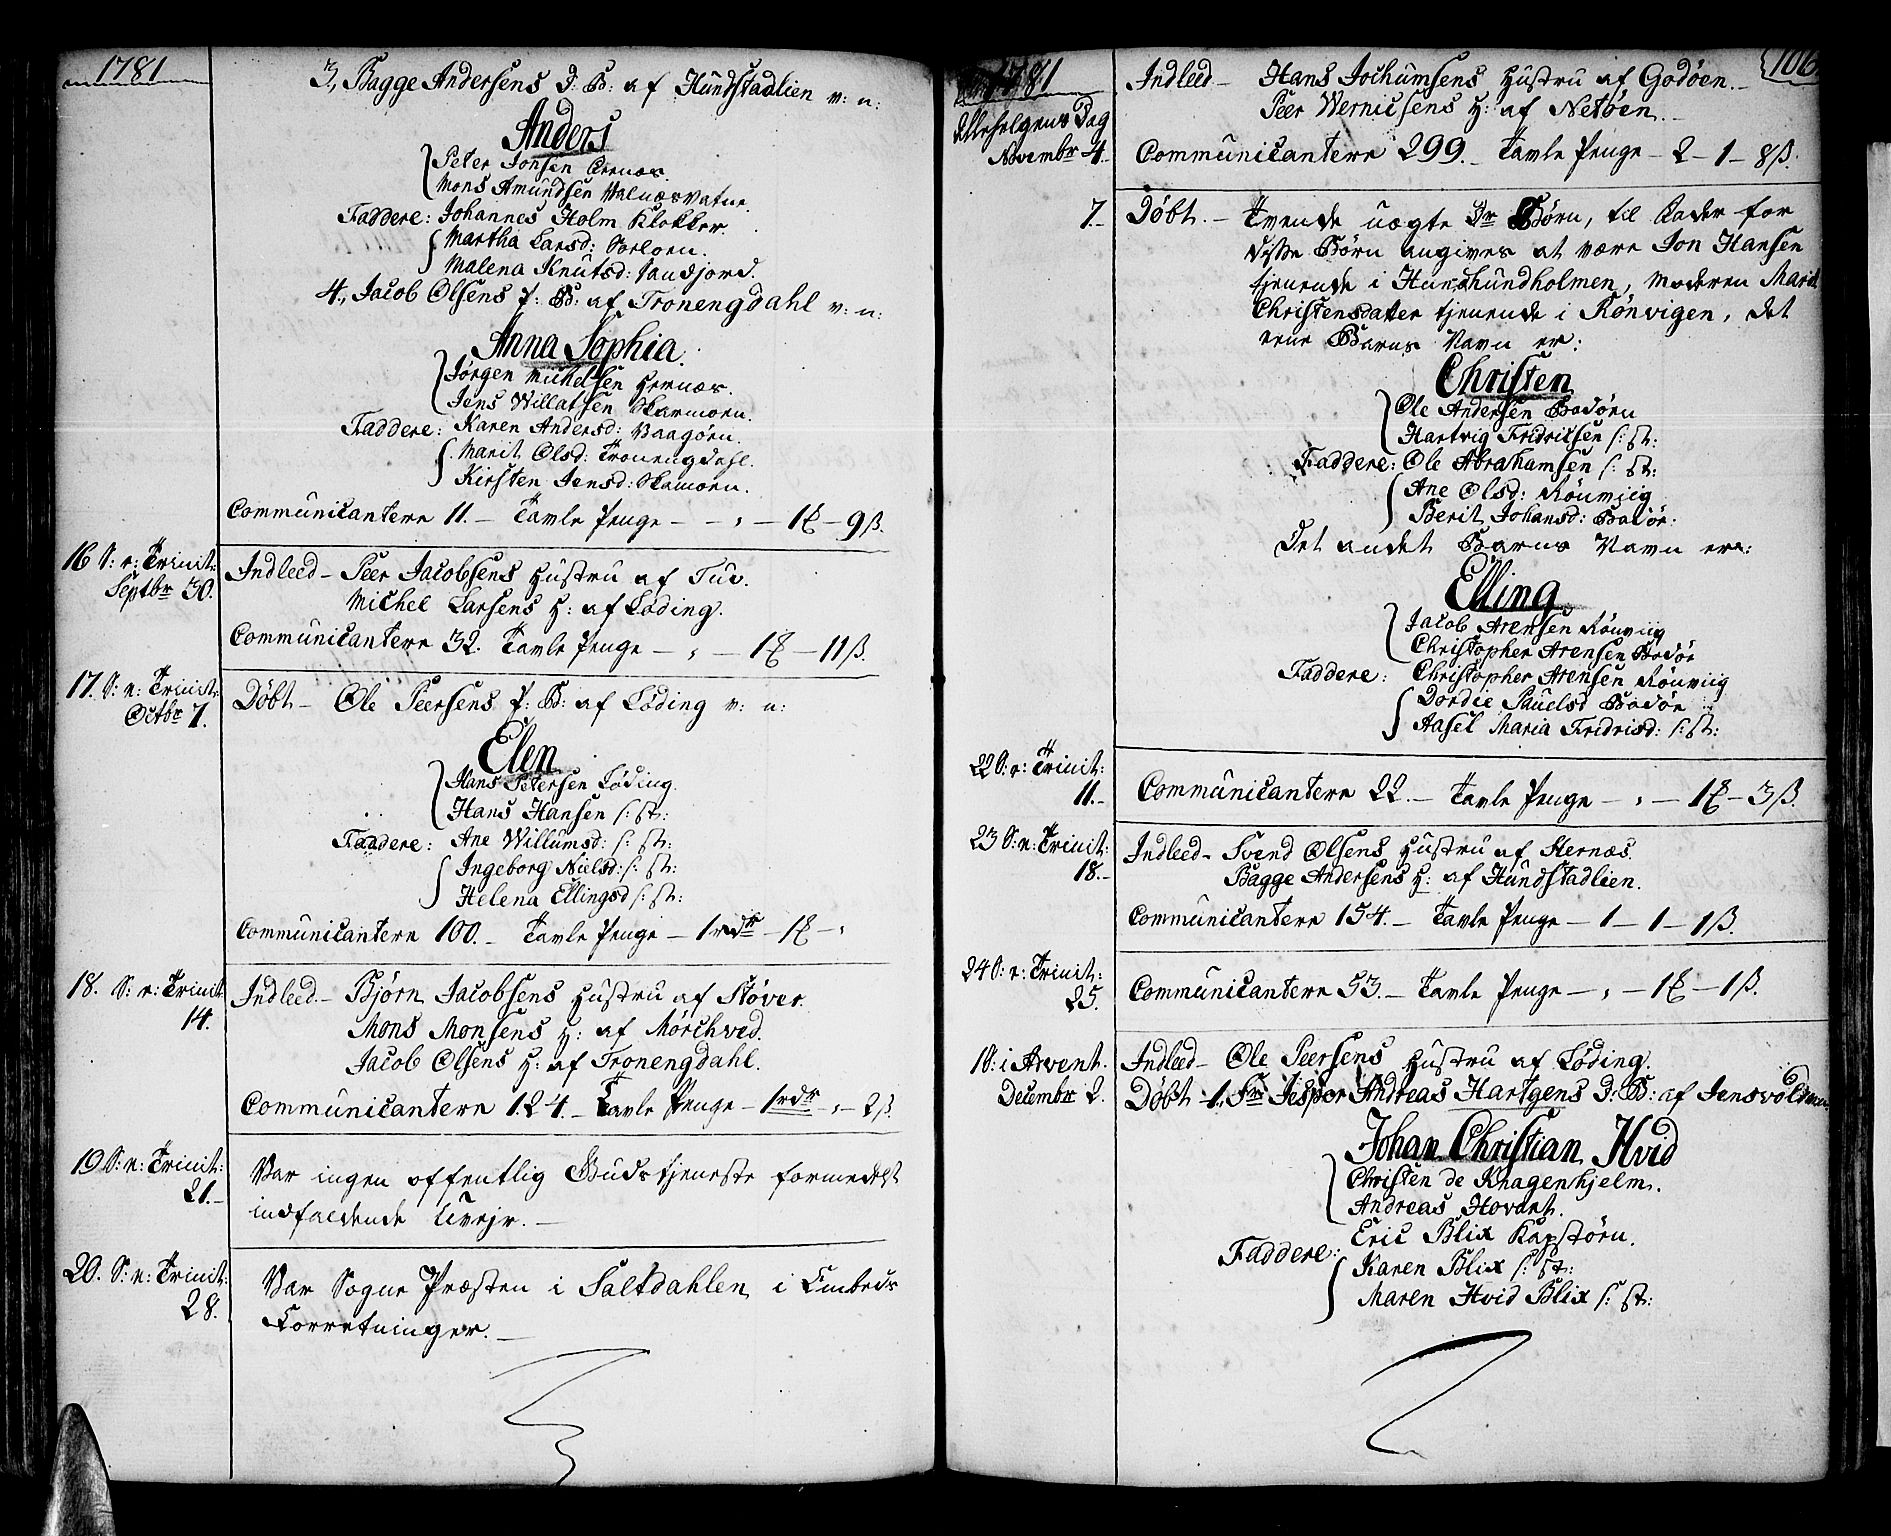 1781
3, Bagge Andersens D: B: af Hundstadlien v: n:
Anders
Peter Jonsen
Mons Amundsen Valnæsvatne.
Faddere: Johannes Holm Klokker.
Martha Larsd:
Malena Knutsd: Sandjord.
4., Jacob Olsens P: B: af Tronengdahl v: n:
Anna Sophia
Jørgen Michelsen Hernæs.
Jens Willatsen Skarmoen.
Faddere: Karen Andersd: Vaagøen.
Marit Olsd: Tronengdahl.
Kirsten Jensd: Skamoen.
Communicantere 11. – Tavle Penge – – , – 1 – 9 ß.
16 S: e: Trinit:
Septbr 30.
Indleed – Peer Jacobsens Hustru af Tuv.
Michel Larsens H: af Løding.
Communicantere 32. Tavle Penge – , – 1 – 11 ß.
17. S: e: Trinit:
Octbr 7.
Døbt – Ole Peersens P: B: af Løding v: n:
Elen
Hans Petersen Løding.
Hans Hansen s: st:
Faddere: Ane Willumsd: s: st:
Ingeborg Nielsd: s: st:
Helena Ellingsd s: st:
Communicantere 100. – Tavle Penge – 1 rdr – 1 – ,
18. S: e: Trinit
14.
Indleed – Bjørn Jacobsens Hustru af Støver.
Mons Monsens H: af Mørchved.
Jacob Olsens H: af Tronengdahl.
Communicantere 124. – Tavle Penge – 1 rdr , – 2 ß.
19 S: e: Trinit:
21. –
Var ingen offentlig Gudstjeneste formedelst
indfaldende Uvejr. –
20. S: e: Trinit:
28.
Var Sogne Præsten i Saltdahlen i Embeds
Forretninger. –
1781
106.
Allehelgens Dag
Novembr 4.
Indleed – Hans Jochumsens Hustru af Godøen. –
Peer Wernicsens H: af Netøen. –
Communicantere 299. – Tavle Penge – 2 – 1 – 8 ß.
7. –
Døbt. – Tvende uægte Dr Børn, til Fader for
disse Børn angives at være Jon Hansen
tjenende i Hundholmen, Moderen Marit
Christensdatter tjenende i Rønvigen, det
eene Barns Navn er:
Christen
Ole Andersen Bodøen
Hartvig Fridricsen s: st:
Faddere: Ole Abrahamsen s: st:
Ane Olsd: Rønviig
Berit Johansd: Bodøe:
Det andet Barns Navn er:
Elling
Jacob Arensen Rønviig
Christopher Arensen Bodøe
Faddere: Christopher Arensen Rønviig
Dordie Pauelsd Bodøe
Aasel Maria Fridrisd: s: st:
22 S: e: Trinit:
11. –
Communicantere 22. – Tavle Penge – , – 1 – 3 ß.
23 S: e: Trinit:
18. –
Indleed – Svend Olsens Hustru af Hernæs.
Bagge Andersens H: af Hundstadlien.
Communicantere 154. – Tavle Penge – 1 – 1 – 1 ß.
24 S: e: Trinit:
25.
Communicantere 53. – Tavle Penge – , – 1 – 1 ß.
1 S: i Advent.
Decembr 2.
Indleed – Ole Peersens Hustru af Løding.
Døbt – 1., Sr Jesper Andreas Hartgens D: B: af Jensvoldene
Johan Christian Hvid
Christen de Knagenhjelm.
Andreas Hovart.
Eric Blix Kapstøen.
Faddere:
Karen Blix s: st:
Maren Hvid Blix s: st: